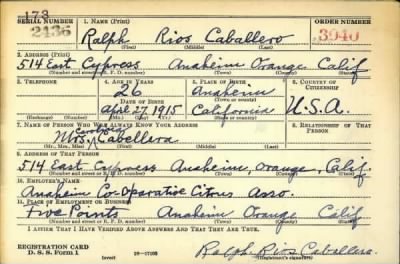 SERIAL NUMBER
1. NAME (Print)
ORDER NUMBER
173
2436
Ralph Rios Caballero
3940
(First) (Middle) (Last)
2. ADDRESS (Print)
514 East Cypress Anaheim Orange Calif
(Number and street or R. F. D. number) (Town) (County) (State)
3. TELEPHONE
4. AGE IN YEARS
5. PLACE OF BIRTH
6. COUNTRY OF CITIZENSHIP
26
Anaheim
(Town or county)
DATE OF BIRTH
April 27 1915
California
U.S.A.
(Exchange) (Number)
(Mo.) (Day) (Yr.)
(State or country)
7. NAME OF PERSON WHO WILL ALWAYS KNOW YOUR ADDRESS
8. RELATIONSHIP OF THAT PERSON
Mrs. Cabellera
(Mr., Mrs., Miss) (First) (Middle) (Last)
9. ADDRESS OF THAT PERSON
514 East Cypress Anaheim, Orange, Calif.
(Number and street or R. F. D. number) (Town) (County) (State)
10. EMPLOYER'S NAME
Anaheim Co-Operative Citrus Asso.
11. PLACE OF EMPLOYMENT OR BUSINESS
Five Points Anaheim Orange Calif
(Number and street or R. F. D. number) (Town) (County) (State)
I AFFIRM THAT I HAVE VERIFIED ABOVE ANSWERS AND THAT THEY ARE TRUE.
REGISTRATION CARD
D. S. S. Form 1
(over)
16—17105
Ralph Rios Caballero.
(Registrant's signature)